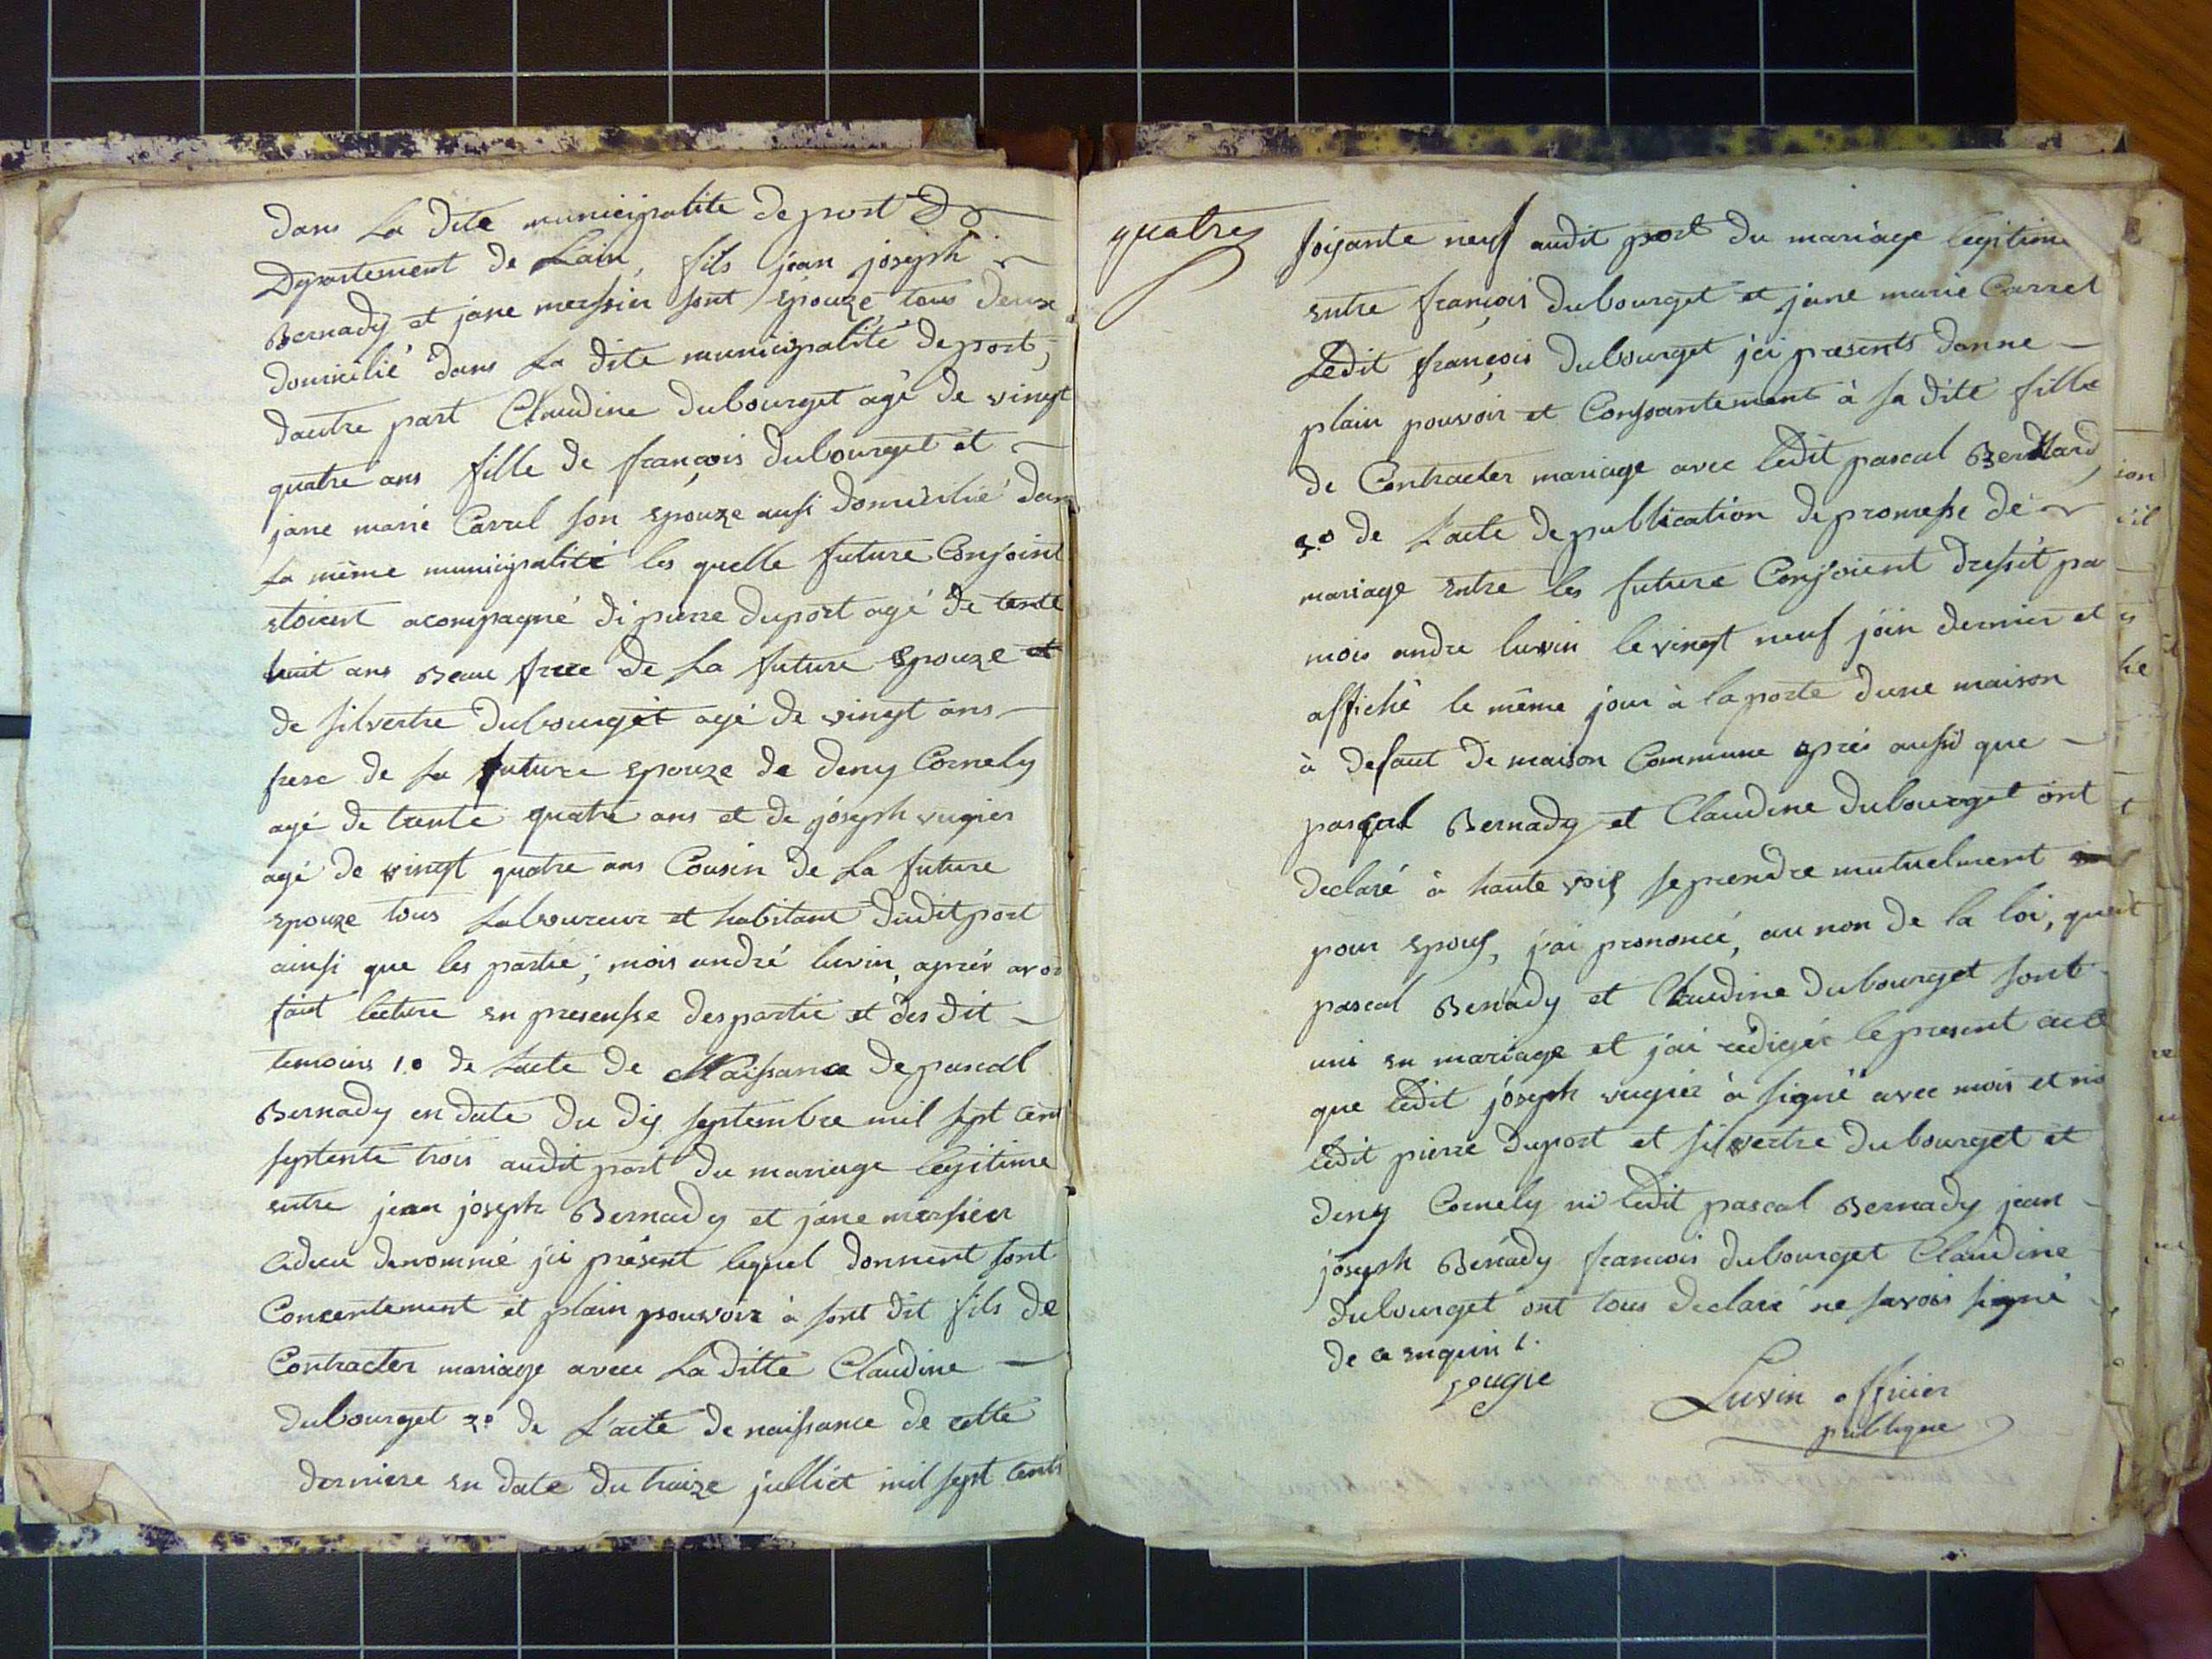 dans La dite municipalite de port D
Departement de Lain, fils jean joseph
Bernady et jane mersier sont Epouze tous deux
domicilié dans La dite municipalité de port,
dautre part Claudine dubourget agé de vingt
quatre ans fille de françois dubourget et
jane marie Carrel son Epouze aussi domicilié dans
La même municipalité les quelle future Conjoint
étoient acompagné di pierre duport agé de tente
huit ans Beau frere de La future Epouze et
de silvestre dubourget agé de vingt ans
frere de La future Epouze de deny Cornely
agé de trente quatre ans et de joseph vugier
agé de vingt quatre ans Cousin de La future
Epouze tous Laboureur et habitant dudit port
ainsi que les partie; mois andré luvin, aprér avoir
fait lecture en presensse des partie et des dit
temoins 1.º de Lacte de Naissance de pascal
Bernady en date du dix septembre mil sept cent
septente trois audit port du mariage legitime
entre jean joseph Bernady et jane mersier
cideu denommé jci présent lequel donnent sont
Concentement et plain pouvoir à sont dit fils de
Contracter mariage avec La ditte Claudine
dubourget 2º de L'acte de naissance de cette
derniere en date du traize julliet mil sept cents
quatre
soixante neuf audit port du mariage legitime
entre françois dubourget et jane marie Carrel
Ledit françois dubourget jci presents donne
plain pouvoir et Conssantement à sa dite fille
de Contracter mariage avec ledit pascal Bernard
3.º de Lacte de publication de promesse de
mariage entre les future Conjoient dressét par
mois andre luvin le vingt neuf join dernier et
affiché le même jour à la porte dune maison
à defaut de maison Commune aprés aussi que
pascal Bernady et Claudine dubourget ont
declaré à haute voix se prendre mutuelment
pour Epoux, j'ai prononcé, au non de la loi, que
pascal Bernady et Claudine dubourget sont
uni en mariage et j'ai rédigér le present acte
que ledit joseph vugier à signé avec mois et ni
ledit pierre duport et silvestre dubourget et
deny Cornely ni ledit pascal Bernady jean
joseph Benady francois dubourget Claudine
dubourget ont tous declaré ne savoir signé
de ce enquirit.
vugie
Luvin officier
publique